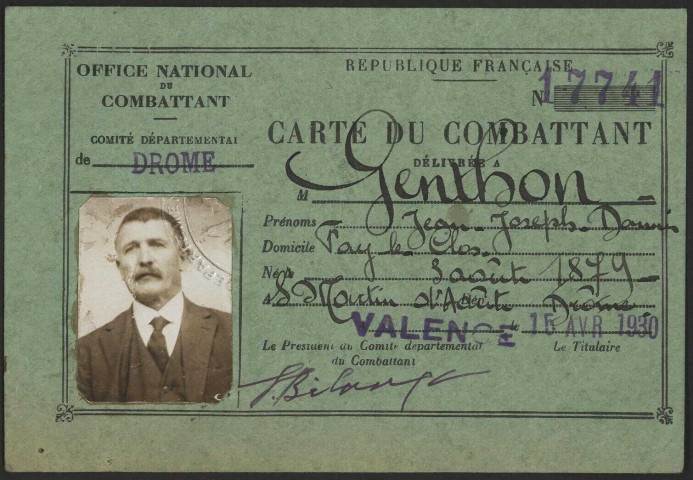 OFFICE NATIONAL
DU
COMBATTANT
COMITÉ DÉPARTEMENTAL
de DROME
RÉPUBLIQUE FRANÇAISE
N 17741
CARTE DU COMBATTANT
DÉLIVRÉE A
M Genthon
Prénoms Jean-Joseph-Damis
Domicile Fay-le-Clos
Né le 3 août 1879
A St Martin d'Août Drôme
VALENCE 15 AVR 1930
Le President du Comité départemental
du Combattant
Le Titulaire